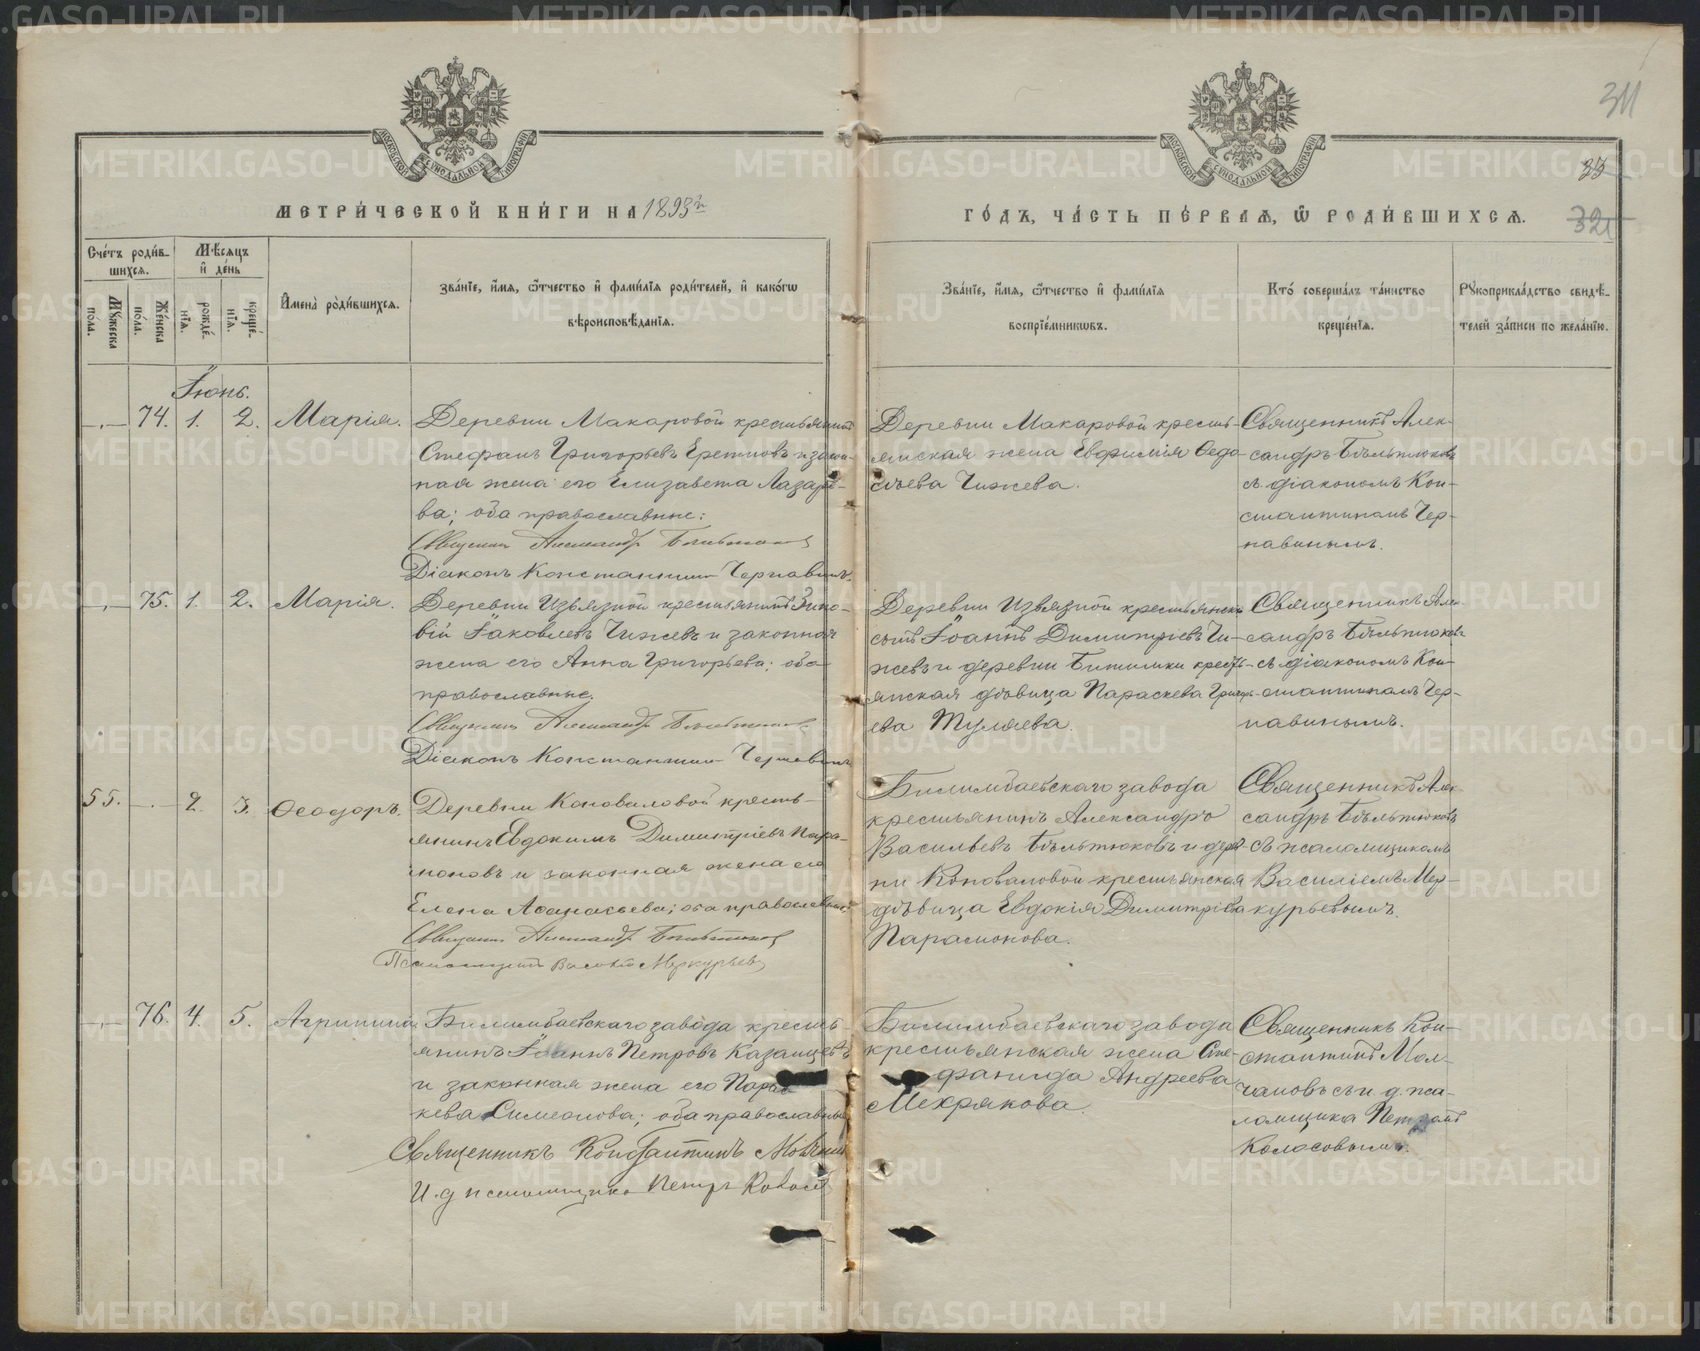 МЕТРИ́ЧЕСКОЙ КНИ́ГИ НА 1893й
ГО́ДЪ, ЧА́СТЬ ПЕ́РВАѦ, Ѿ РОДИ́ВШИХСѦ.
311
33
32
Сче́тъ роди́в-
шихсѧ.
Мꙋжеска
по́ла.
Же́нска
по́ла.
Мѣ́сѧцъ
и҆ де́нь
рожде́-
нїѧ.
креще́-
нїѧ.
И҆мена̀ роди́вшихсѧ.
Зва́нїе, и҆́мѧ, ѻ҆́тчество и҆ фами́лїѧ роди́телей, и҆ како́гѡ
вѣроисповѣ́данїѧ.
Зва́нїе, и҆́мѧ, ѻ҆́тчество и҆ фами́лїѧ
воспрїе́мникѡвъ.
Кто̀ соверша́лъ та́инство
креще́нїѧ.
Рꙋкоприкла́дство свидѣ́-
телей за́писи по жела́нїю.
Іюнь.
74. 1. 2. Марія.
Деревни Макаровой крестьянинъ
Стефанъ Григорьевъ и закон-
ная жена его Елизавета Лазаре-
ва; оба православные:
Священникъ Александръ Бѣльтюковъ
Діаконъ Константинъ Чернавинъ.
Деревни Макаровой кресть-
янская жена Евфимія Ѳедо-
сѣева Чижева.
Священникъ Алек-
сандръ Бѣльтюковъ
съ діакономъ Кон-
стантиномъ Чер-
навинымъ.
75. 1. 2. Марія.
Деревни Извязной крестьянинъ Зино-
вій Іаковлевъ Чижевъ и законная
жена его Анна Григорьева; оба
православные.
Священникъ Александръ Бѣльтюковъ
Діаконъ Константинъ Чернавинъ
Деревни Извязной крестьянскій
сынъ Іоаннъ Димитріевъ Чи-
жевъ и деревни Битимки кресть-
янская дѣвица Параскева Григорь-
ева Туляева.
Священникъ Алек-
сандръ Бѣльтюковъ
съ діакономъ Кон-
стантиномъ Чер-
навинымъ.
55. 2. 3. Ѳеодоръ.
Деревни Коноваловой кресть-
янинъ Евдокимъ Димитріевъ Пара-
моновъ и законная жена его
Елена Аѳанасьева; оба православные
Священникъ Александръ Бѣльтюковъ
Псаломщикъ Василій Меркурьевъ
Билимбаевскаго завода
крестьянинъ Александръ
Васильевъ Бѣльтюковъ и дерев-
ни Коноваловой крестьянская
дѣвица Евдокія Димитріева
Парамонова.
Священникъ Алек-
сандръ Бѣльтюковъ
съ псаломщикомъ
Василіемъ Мер-
курьевымъ.
76. 4. 5. Агрипина.
Билимбаевскаго завода кресть-
янинъ Іоаннъ Петровъ Казанцевъ
и законная жена его Парас-
кева Симеонова; оба православные
Священникъ Константинъ Молчановъ
И. д. псаломщика Петръ Колосовъ
Билимбаевскаго завода
крестьянская жена Сте-
фанида Андреева
Мехрякова.
Священникъ Кон-
стантинъ Мол-
чановъ съ и. д. пса-
ломщика Петромъ
Колосовымъ.
METRIKI.GASO-URAL.RU